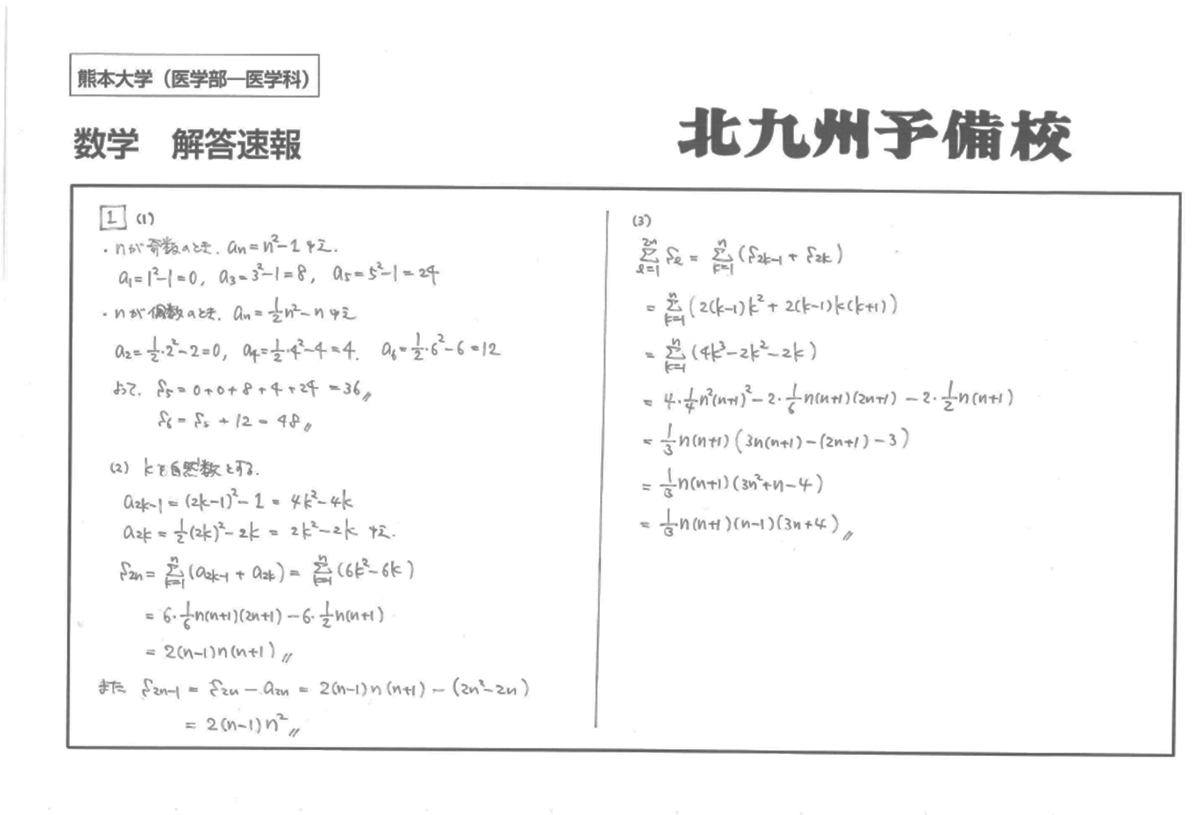 熊本大学（医学部―医学科）
数学　解答速報
北九州予備校
1 (1)
・nが奇数のとき. aₙ=n²-1 ゆえ.
a₁=1²-1=0, a₃=3²-1=8, a₅=5²-1=24
・nが偶数のとき. aₙ=1/2n²-n ゆえ
a₂=1/2・2²-2=0, a₄=1/2・4²-4=4. a₆=1/2・6²-6=12
よって. S₅=0+0+8+4+24=36〃
S₆=S₅+12=48〃
(2) kを自然数とする.
a₂ₖ₋₁=(2k-1)²-1=4k²-4k
a₂ₖ=1/2(2k)²-2k=2k²-2k ゆえ.
S₂ₙ=Σ[k=1→n](a₂ₖ₋₁+a₂ₖ)=Σ[k=1→n](6k²-6k)
=6・1/6n(n+1)(2n+1)-6・1/2n(n+1)
=2(n-1)n(n+1)〃
また S₂ₙ₋₁=S₂ₙ-a₂ₙ=2(n-1)n(n+1)-(2n²-2n)
=2(n-1)n²〃
(3)
Σ[ℓ=1→2n]S_ℓ=Σ[k=1→n](S₂ₖ₋₁+S₂ₖ)
=Σ[k=1→n](2(k-1)k²+2(k-1)k(k+1))
=Σ[k=1→n](4k³-2k²-2k)
=4・1/4n²(n+1)²-2・1/6n(n+1)(2n+1)-2・1/2n(n+1)
=1/3n(n+1)(3n(n+1)-(2n+1)-3)
=1/3n(n+1)(3n²+n-4)
=1/3n(n+1)(n-1)(3n+4)〃